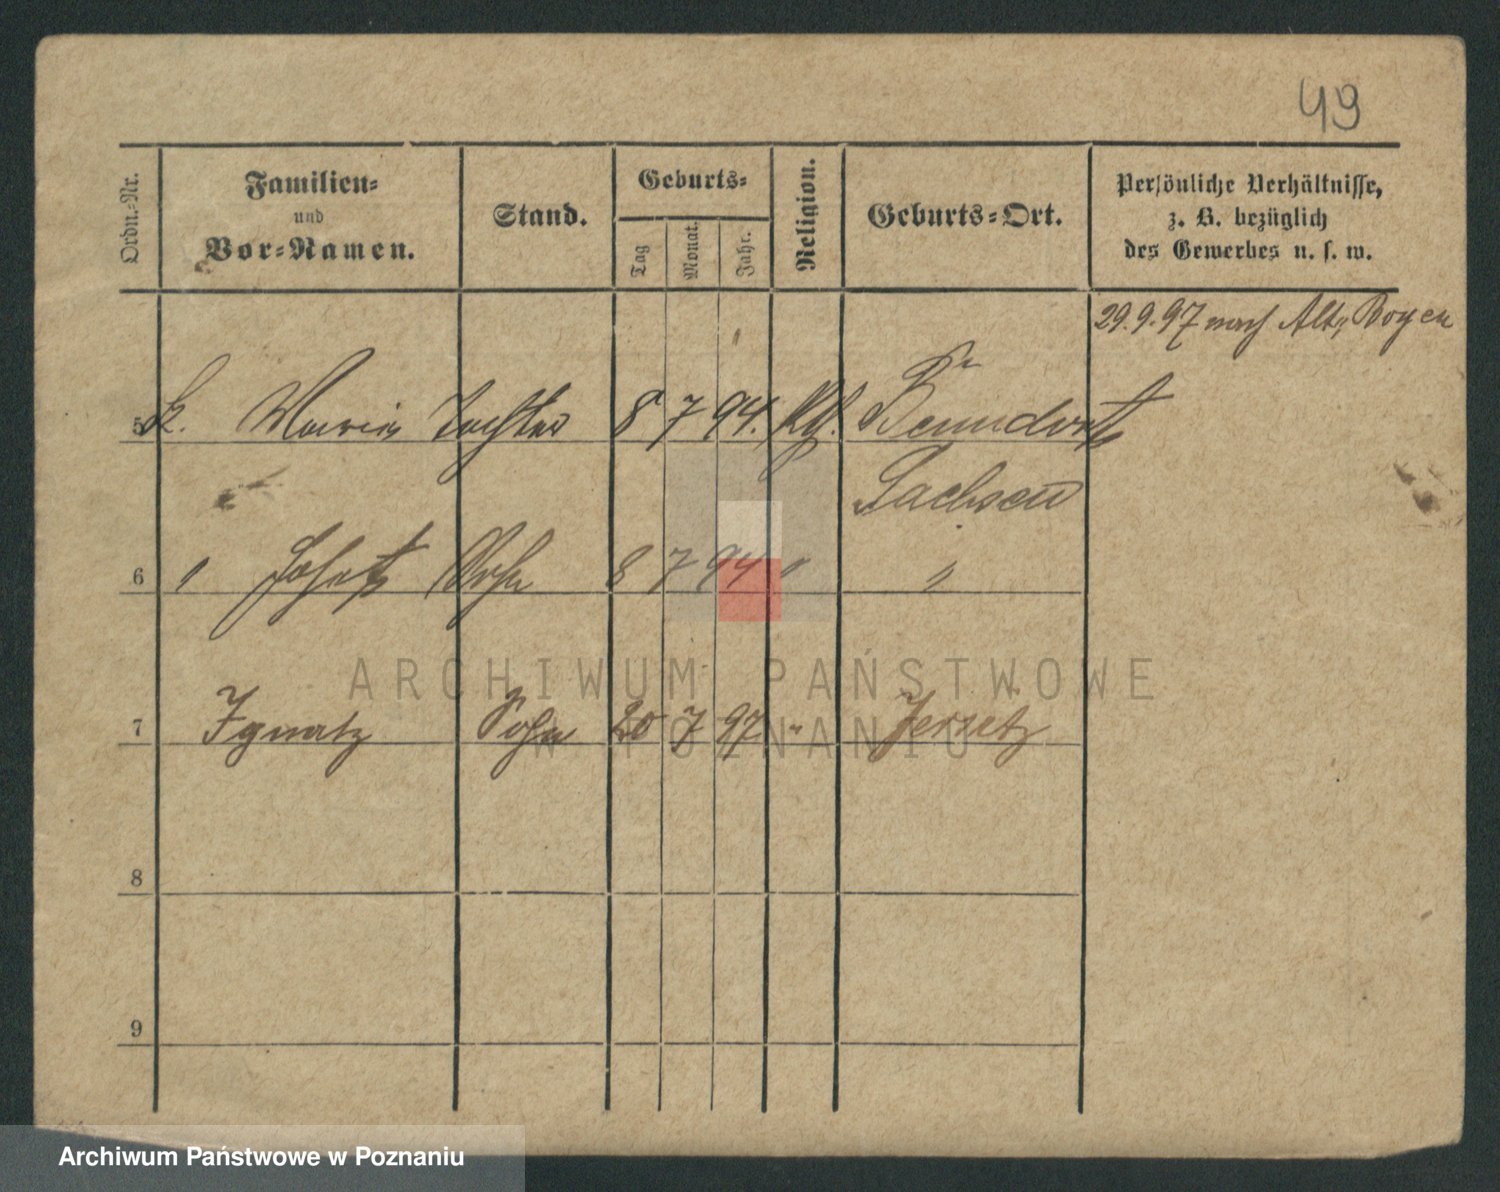 49
Ordn.-Nr.
Familien-
und
Vor-Namen.
Stand.
Geburts-
Tag
Monat.
Jahr.
Religion.
Geburts-Ort.
Persönliche Verhältnisse,
z. B. bezüglich
des Gewerbes u. s. w.
29.9.97 nach Alt Boyen
5 k. Maria Tochter 8 7 94. Kth. Benndorf
Sachsen
6 " Josef Sohn 8 7 94 " "
7 Ignatz Sohn 20 7 97 " Jersitz
8
9
ARCHIWUM PAŃSTWOWE
W POZNANIU
Archiwum Państwowe w Poznaniu